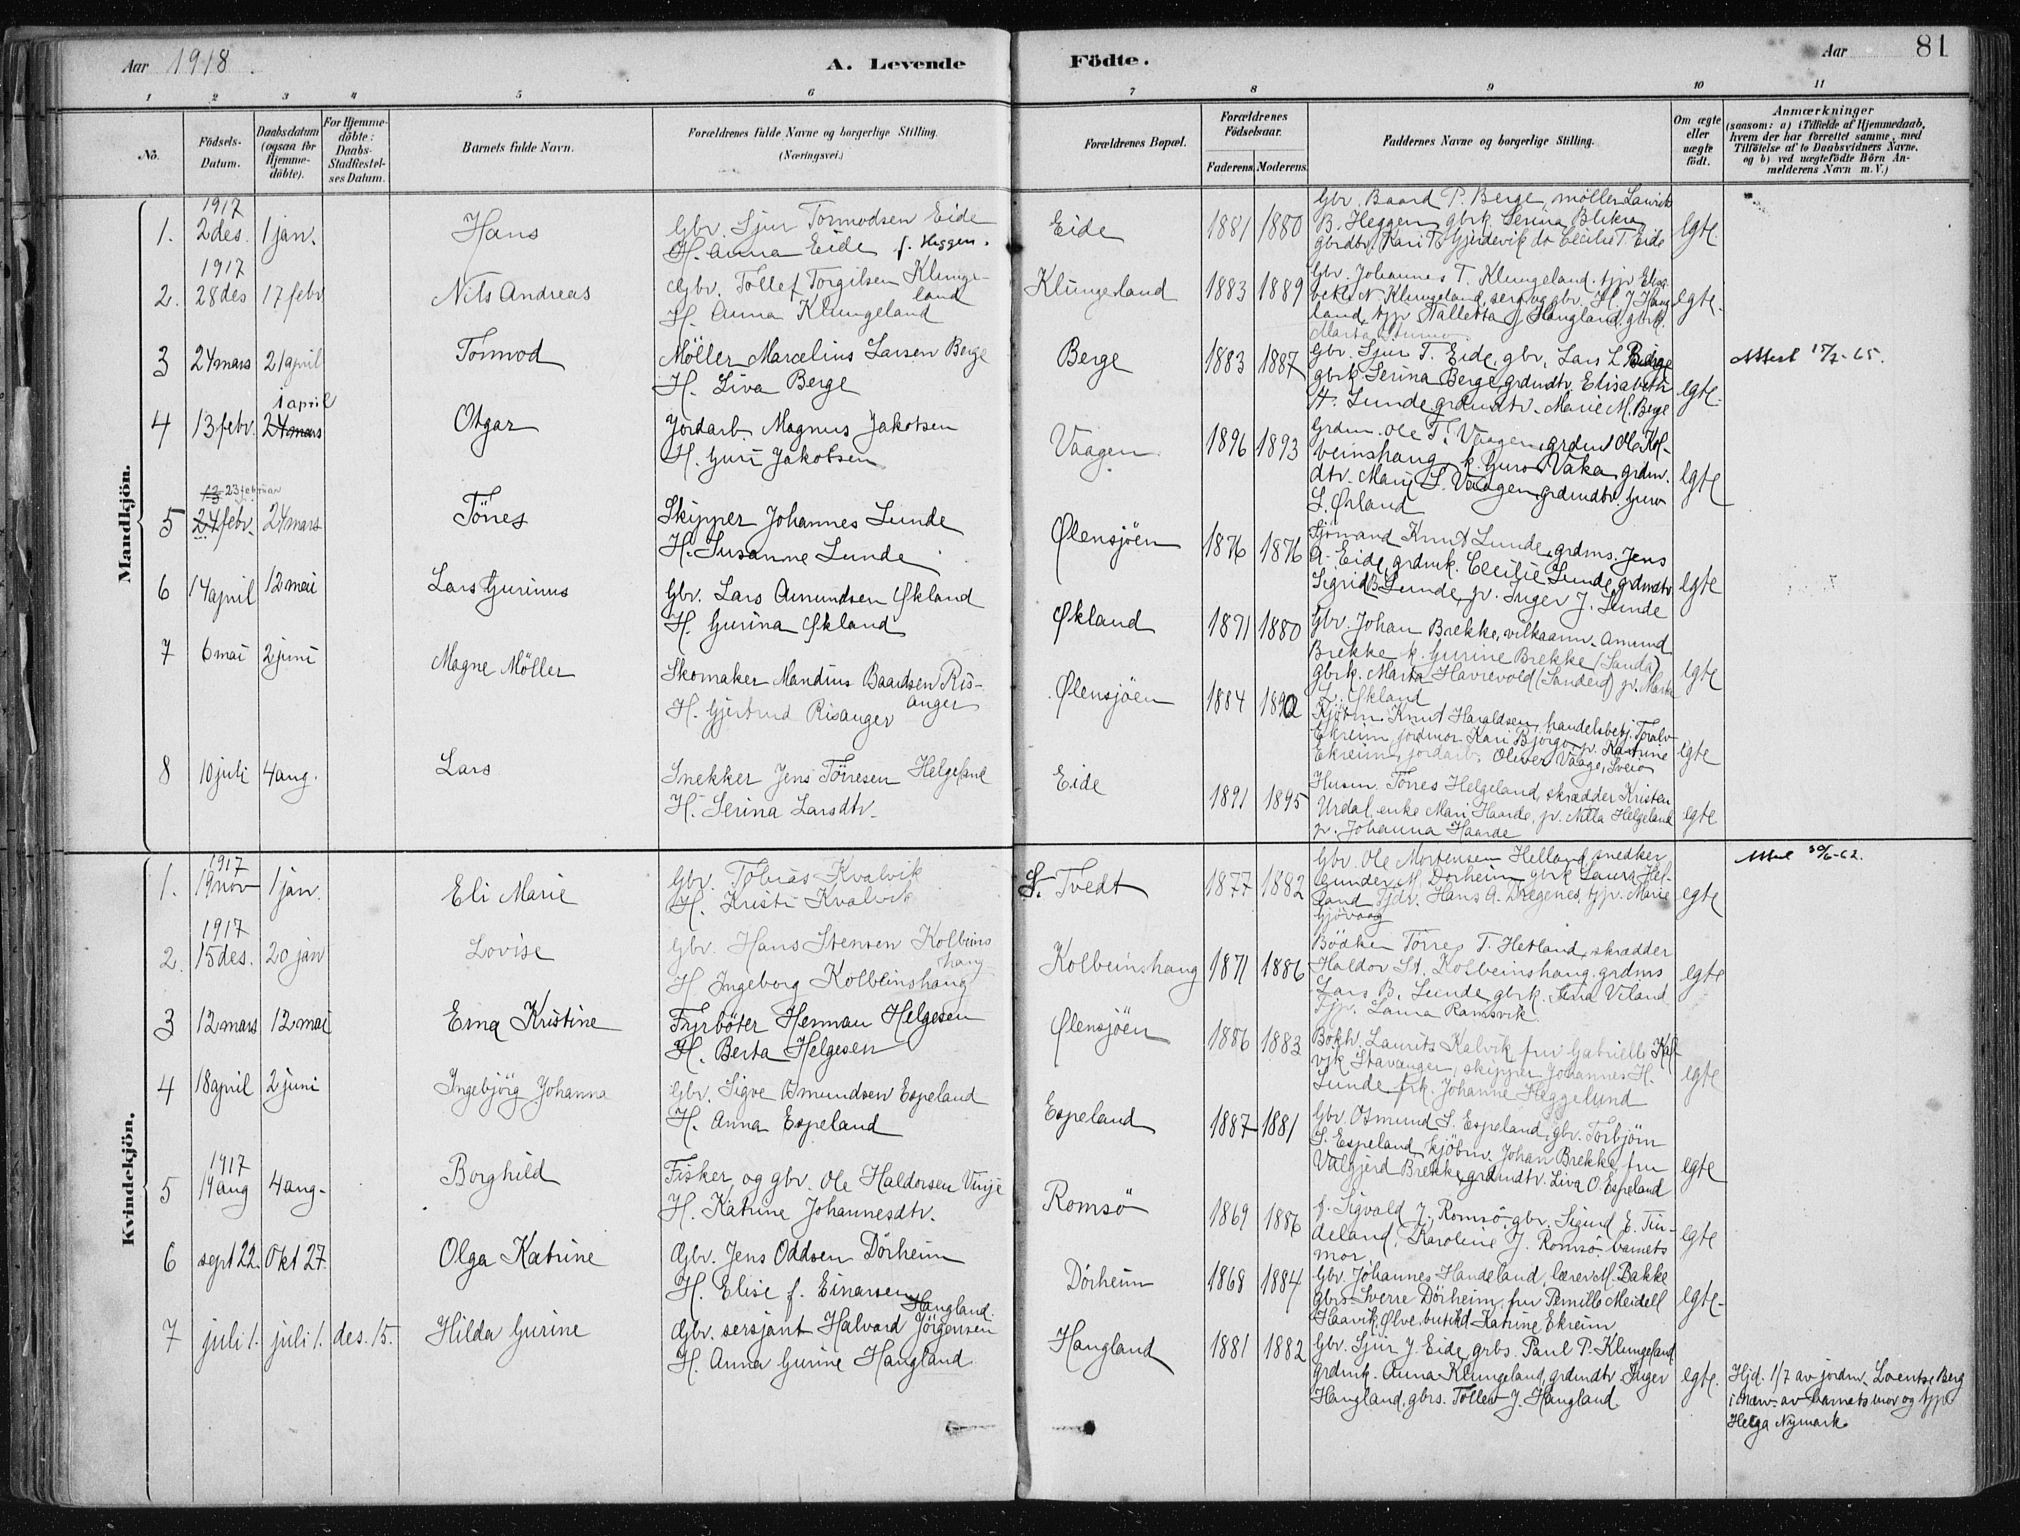 Aar 1918.
A. Levende
Födte.
Aar
81
1 2 3 4 5 6 7 8 9 10 11
No.
Födsels-Datum.
Daabsdatum (ogsaa for Hjemme-döbte).
For Hjemme-döbte: Daabs-Stadfæstel-ses Datum.
Barnets fulde Navn.
Forældrenes fulde Navne og borgerlige Stilling.
(Næringsvei.)
Forældrenes Bopæl.
Forældrenes Födselsaar.
Faderens. Moderens.
Faddernes Navne og borgerlige Stilling.
Om ægte eller uægte födt.
Anmærkninger
(saasom: a) i Tilfælde af Hjemmedaab,
hvem der har forrettet samme, med
Tilföielse af to Daabsvidners Navne.
og b) ved uægtefödte Börn An-
melderens Navn m.V.)
Mandkjön.
1917
1. 2 des. 1 jan. Hans
Gbr. Sjur Tormodsen Eide
H. Anna Eide f. Heggen.
Eide 1881 1880
Gbr. Baard P. Berge, møller Laurits
B. Heggen gbrk Serina Blikra
gbrdtr. Kari T. Gjerdevik do Cecilie T. Eide
egte.
1917
2. 28 des 17 febr Nils Andreas
Gbr. Tollef Torgilsen Klunge-
land
H. Anna Klungeland
Klungeland 1883 1889
Gbr. Johannes T. Klungeland, tjp. Elisa-
beth N Klungeland, sersj og gbr. H. J. Haug
land, tjp Malletta J Haugland, gbrk.
egte.
3 24 mars 21 april Tormod
Möller Marcelius Larsen Berge
H. Liva Berge
Berge 1883 1887
Gbr. Sjur T. Eide, gbr. Lars L. Berge
gbrk Serina Berge, grdmdtr. Elisabeth
H. Lunde, grdmdtr. Marie M. Berge
egte.
Attest 15/2-65.
1 april
4 13 febr. 24 mars Otgar
Jordarb. Magnus Jakobsen
H. Guri Jakobsen
Vaagen 1896 1893
Grdm. Ole T. Vaagen, grdm Ole Kol-
beinshaug, k. Guro Vaka, grdm.
dtr. Mari S. Vaagen, grdmdtr. Guro
S. Ørland
egte
13 23 februar
5 24 febr. 24 mars Tönes
Skipper Johannes Lunde
H. Susanne Lunde
Ølensjöen 1876 1876
Sjömand Knut Lunde, grdms. Jens
A. Eide, grdmk. Cecilie Lunde, grdmdtr
Sigrid B. Lunde, p. Inger J. Lunde
egte
6 14 april 12 mai Lars Gurinus
Gbr. Lars Amundsen Økland
H. Gurina Økland
Økland 1871 1880
Gbr. Johan Brekke, vilkaarm. Amund
Brekke k. Gurine Brekke (Sanda)
Gbrk. Marta Havrevold (Sandeid) p. Marta
L. Økland
egte
7 6 mai 2 juni Magne Möller
Skomaker Mandius Baardsen Ris-
anger
H. Gjertrud Risanger
Ølensjöen 1884 1890
Kjöbm. Knut Haraldsen, handelsbetj. Toralv
Ekreim, jordmor Kari Bjorge, p. Katrine
Ekreim, jordarb. Oliver Vaage, Sveio
egte
8 10 juli 4 aug. Lars
Snekker Jens Törresen Helgeland
H. Serina Larsdtr.
Eide 1891 1895
Husm. Tönes Helgeland, skrædder Kristen
Urdal, enke Mari Haarde, p. Nilla Helgeland
p. Johanna Haarde
egte
Kvindekjön.
1917
1. 19 nov 1 jan. Eli Marie
Gbr. Tobias Kvalvik
H. Kristi Kvalvik
S. Tvedt 1877 1882
Gbr. Ole Mortensen Helland, snedker
Gunder M. Dörheim, gbrk Laura Hel-
land, Tjdr. Hans A. Dregenes, tjp. Marie
Gjövaag
egte
Attest 30/6-62.
1917
2. 15 des. 20 jan Lovise
Gbr. Hans Stensen Kolbeins
haug
H. Ingeborg Kolbeinshaug
Kolbeinshaug 1871 1886
Bödker Törres T. Hetland, skrædder
Haldor St. Kolbeinshaug, grdms
Lars B. Lunde, gbrk. Sina Viland
Tjp. Laura Ramsvik.
egte
3 12 mars 12 mai Erna Kristine
Fyrböter Herman Helgesen
H. Berta Helgesen
Ølensjöen 1886 1883
Bokh. Laurits Kalvik, fru Gabrielle Kal-
vik Stavanger, skipper Johannes H.
Lunde frk. Johanne Heggelund
egte
4 18 april 2 juni Ingebjörg Johanna
Gbr. Sigve Osmundsen Espeland
H. Anna Espeland
Espeland 1887 1881
Gbr. Osmund S. Espeland, gbr. Torbjörn
S. Espeland, kjöbm. Johan Brekke, fru
Valgjerd Brekke, grdmdtr. Liva O. Espeland
egte
1917
5 14 aug 4 aug. Borghild
Fisker og gbr. Ole Haldorsen Vinje
H. Katrine Johannesdtr.
Romsö 1869 1886
f. Sigvald J. Romsö, gbr. Sigurd E. Tin-
deland, Karoline J. Romsö, barnets
mor
egte
6 sept 22. Okt 27. Olga Katrine
Gbr. Jens Oddsen Dörheim
H. Elise f. Einarsen
Dörheim 1868 1884
Gbr. Johannes Handeland, lærer M. Bakke
Gbrs. Sverre Dörheim, fru Pernille Meidell
Haavik, Ølve, butikd Katrine Ekreim
egte.
7 juli 1. juli 1. des. 15. Hilda Gurine
Haugland.
Gbr. sersjant Halvard Jörgensen
H. Anna Gurine Haugland
Haugland 1881 1882
Gbr. Sjur J. Eide, grbs. Paul P. Klungeland
grdmk. Anna Klungeland, grdmdtr. Inger
Haugland, gbrs. Tollev J. Haugland.
egte.
Hjd. 1/7 av jordm. Lorentse Berg
i nærv. av barnets mor og tjp.
Helga Nymark.